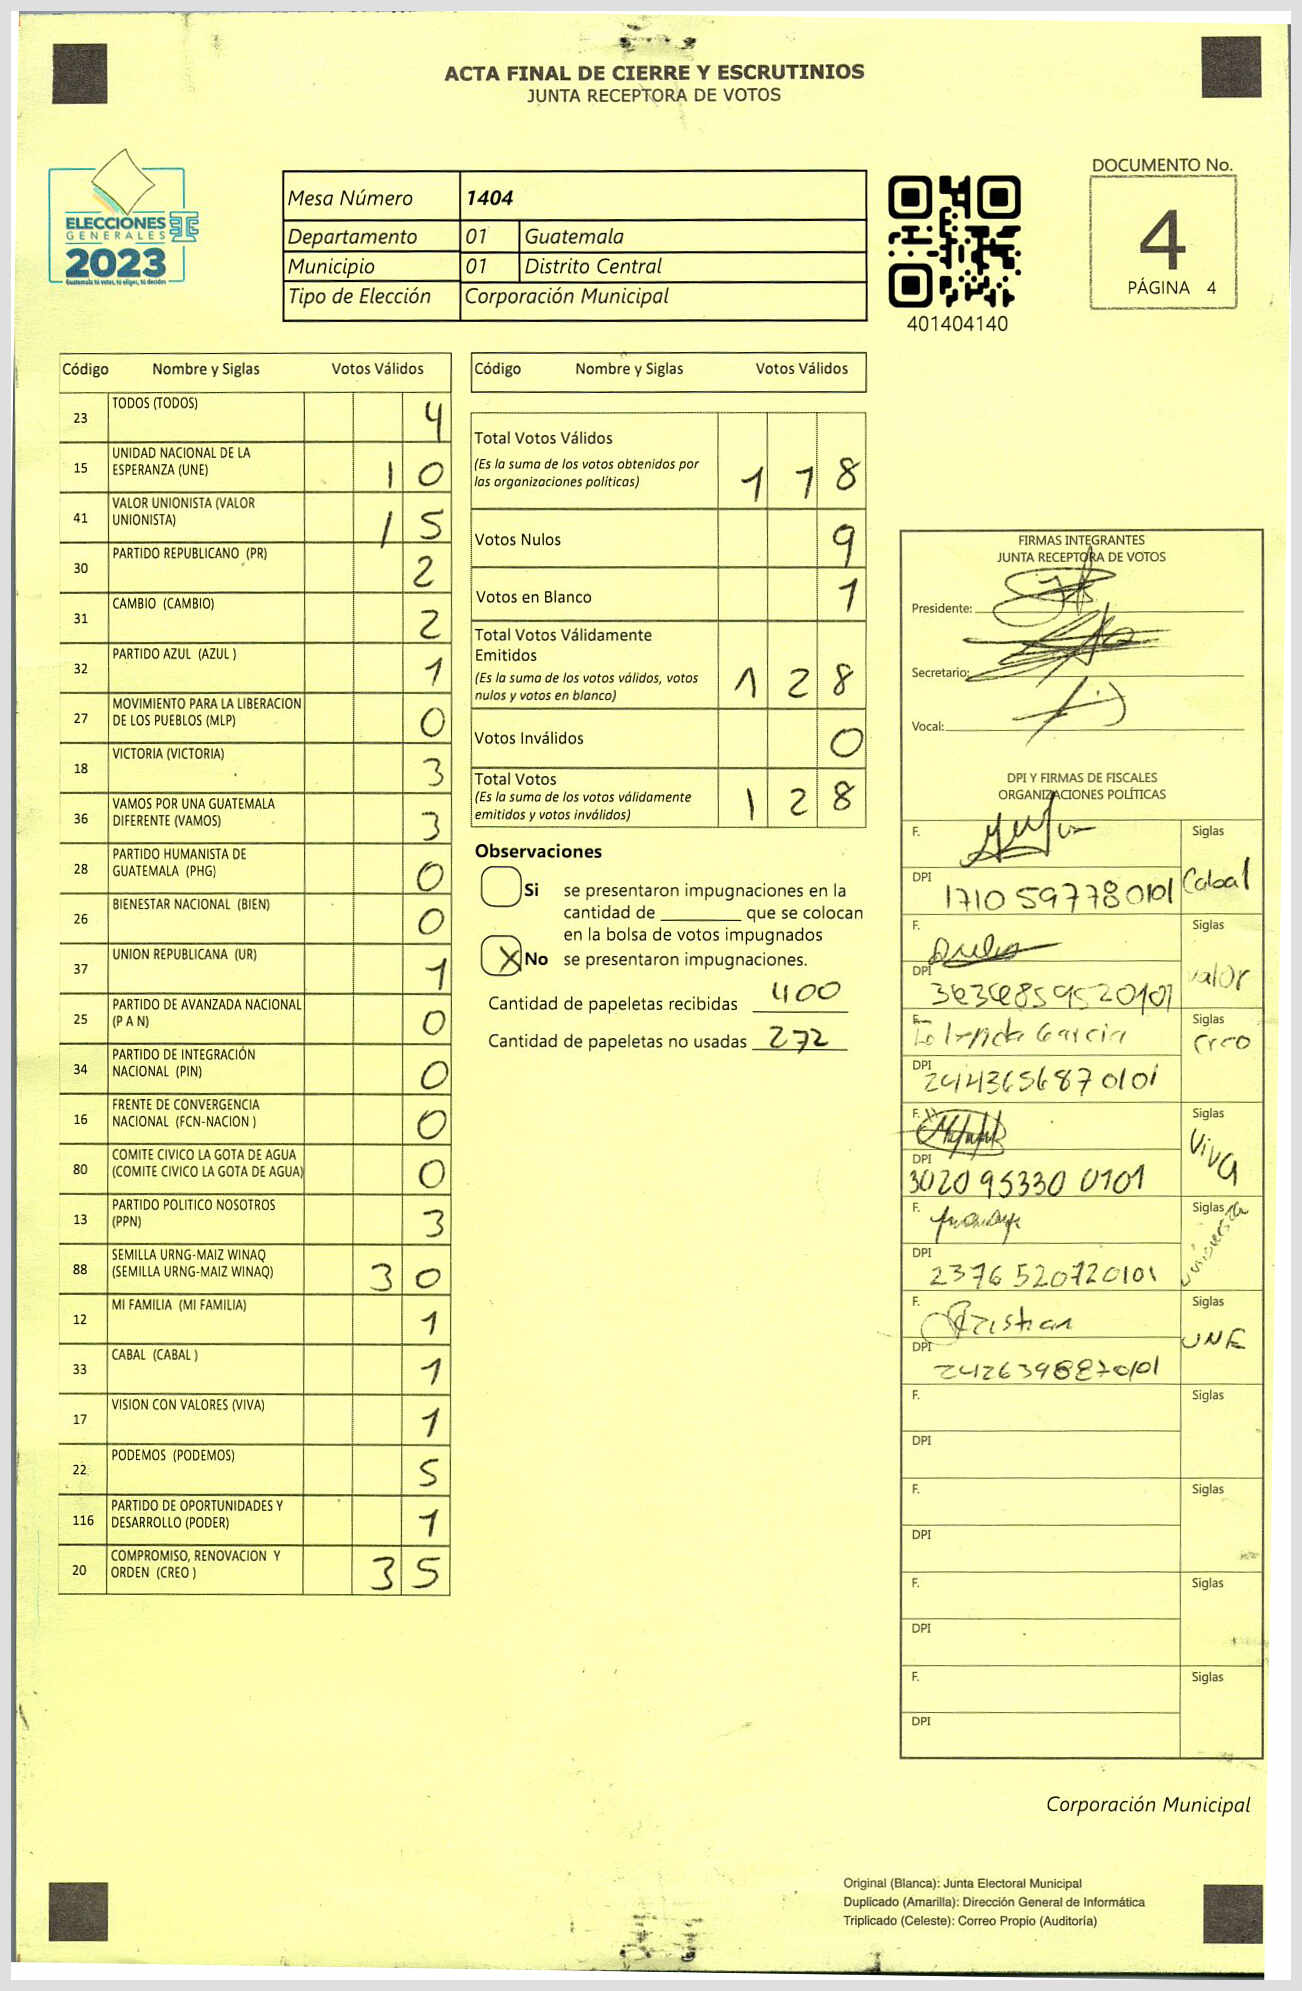 ACTA FINAL DE CIERRE Y ESCRUTINIOS
JUNTA RECEPTORA DE VOTOS
ELECCIONES
GENERALES
2023
Guatemala tú votas, tú eliges, tú decides
Mesa Número 1404
Departamento 01 Guatemala
Municipio 01 Distrito Central
Tipo de Elección Corporación Municipal
401404140
DOCUMENTO No.
4
PÁGINA 4
Código Nombre y Siglas Votos Válidos
23 TODOS (TODOS) 4
15 UNIDAD NACIONAL DE LA
ESPERANZA (UNE) 10
41 VALOR UNIONISTA (VALOR
UNIONISTA) 15
30 PARTIDO REPUBLICANO (PR) 2
31 CAMBIO (CAMBIO) 2
32 PARTIDO AZUL (AZUL ) 1
27 MOVIMIENTO PARA LA LIBERACION
DE LOS PUEBLOS (MLP) 0
18 VICTORIA (VICTORIA) 3
36 VAMOS POR UNA GUATEMALA
DIFERENTE (VAMOS) 3
28 PARTIDO HUMANISTA DE
GUATEMALA (PHG) 0
26 BIENESTAR NACIONAL (BIEN) 0
37 UNION REPUBLICANA (UR) 1
25 PARTIDO DE AVANZADA NACIONAL
(P A N) 0
34 PARTIDO DE INTEGRACIÓN
NACIONAL (PIN) 0
16 FRENTE DE CONVERGENCIA
NACIONAL (FCN-NACION ) 0
80 COMITE CIVICO LA GOTA DE AGUA
(COMITE CIVICO LA GOTA DE AGUA) 0
13 PARTIDO POLITICO NOSOTROS
(PPN) 3
88 SEMILLA URNG-MAIZ WINAQ
(SEMILLA URNG-MAIZ WINAQ) 30
12 MI FAMILIA (MI FAMILIA) 1
33 CABAL (CABAL ) 1
17 VISION CON VALORES (VIVA) 1
22 PODEMOS (PODEMOS) 5
116 PARTIDO DE OPORTUNIDADES Y
DESARROLLO (PODER) 1
20 COMPROMISO, RENOVACION Y
ORDEN (CREO ) 35
Código Nombre y Siglas Votos Válidos
Total Votos Válidos
(Es la suma de los votos obtenidos por
las organizaciones políticas) 118
Votos Nulos 9
Votos en Blanco 1
Total Votos Válidamente
Emitidos
(Es la suma de los votos válidos, votos
nulos y votos en blanco) 128
Votos Inválidos 0
Total Votos
(Es la suma de los votos válidamente
emitidos y votos inválidos) 128
Observaciones
Si se presentaron impugnaciones en la
cantidad de ________ que se colocan
en la bolsa de votos impugnados
X No se presentaron impugnaciones.
Cantidad de papeletas recibidas 400
Cantidad de papeletas no usadas 272
FIRMAS INTEGRANTES
JUNTA RECEPTORA DE VOTOS
Presidente:
Secretario:
Vocal:
DPI Y FIRMAS DE FISCALES
ORGANIZACIONES POLÍTICAS
F. Siglas
DPI 1710 59778 0101 Cabal
F. Siglas
DPI valor
F. Garcia Siglas
DPI 2414365687 0101 Creo
F. Siglas
DPI 3020 95330 0101 Viva
F. Siglas
DPI 2376 52072 0101
F. Cristian Siglas
DPI 2426398870101 UNE
F. Siglas
DPI
F. Siglas
DPI
F. Siglas
DPI
F. Siglas
DPI
Corporación Municipal
Original (Blanca): Junta Electoral Municipal
Duplicado (Amarilla): Dirección General de Informática
Triplicado (Celeste): Correo Propio (Auditoría)